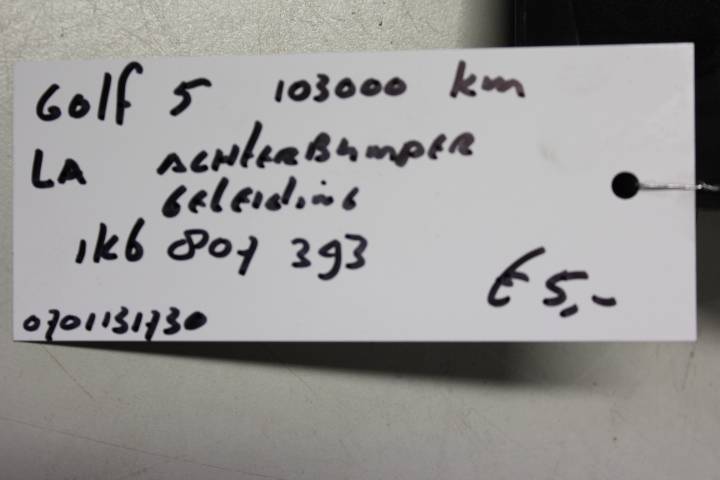 Golf 5 103000 km
LA ACHTERBUMPER
GELEIDING
1K6 807 393
€ 5,-
0701131730